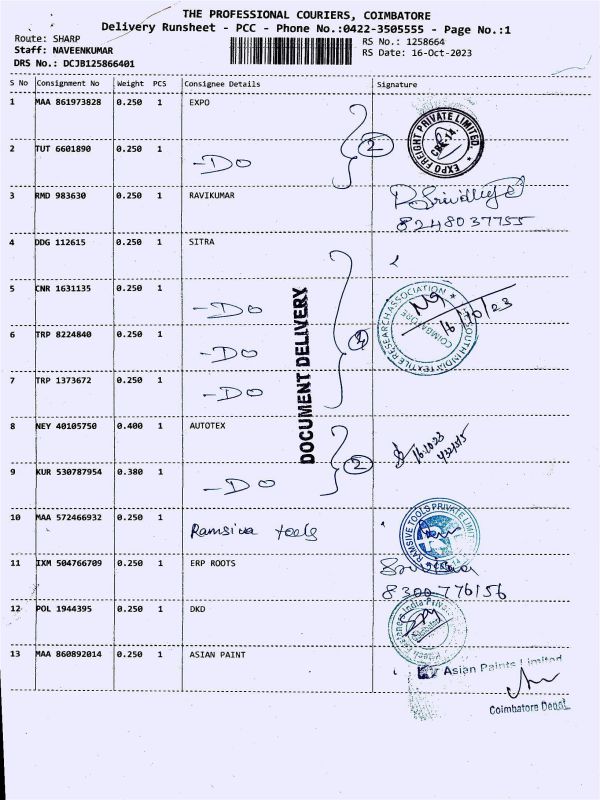 THE PROFESSIONAL COURIERS, COIMBATORE
Delivery Runsheet - PCC - Phone No.:0422-3505555 - Page No.:1
Route: SHARP
RS No.: 1258664
Staff: NAVEENKUMAR
RS Date: 16-Oct-2023
DRS No.: DCJB125866401
S No Consignment No Weight PCS Consignee Details Signature
1 MAA 861973828 0.250 1 EXPO
EXPO FREIGHT PRIVATE LIMITED
CBE-14.
2 TUT 6601890 0.250 1 -DO 2
3 RMD 983630 0.250 1 RAVIKUMAR
8248037755
4 DDG 112615 0.250 1 SITRA
5 CNR 1631135 0.250 1 -DO
SOUTH INDIA TEXTILE RESEARCH ASSOCIATION
COIMBATORE
16/10/23
6 TRP 8224840 0.250 1 -DO 4
7 TRP 1373672 0.250 1 -DO
DOCUMENT DELIVERY
8 NEY 40105750 0.400 1 AUTOTEX
16.10.23
9 KUR 530787954 0.380 1 -DO 2
10 MAA 572466932 0.250 1 Ramsiva tools
RAMSIVE TOOLS PRIVATE LIMIT
11 IXM 504766709 0.250 1 ERP ROOTS
8300776156
12 POL 1944395 0.250 1 DKD
13 MAA 860892014 0.250 1 ASIAN PAINT
Asian Paints Limited
Coimbatore Depot